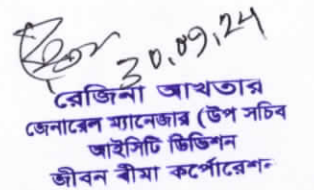 30.09.24
রেজিনা আখতার
জেনারেল ম্যানেজার (উপ সচিব
আইসিটি ডিভিশন
জীবন বীমা কর্পোরেশন